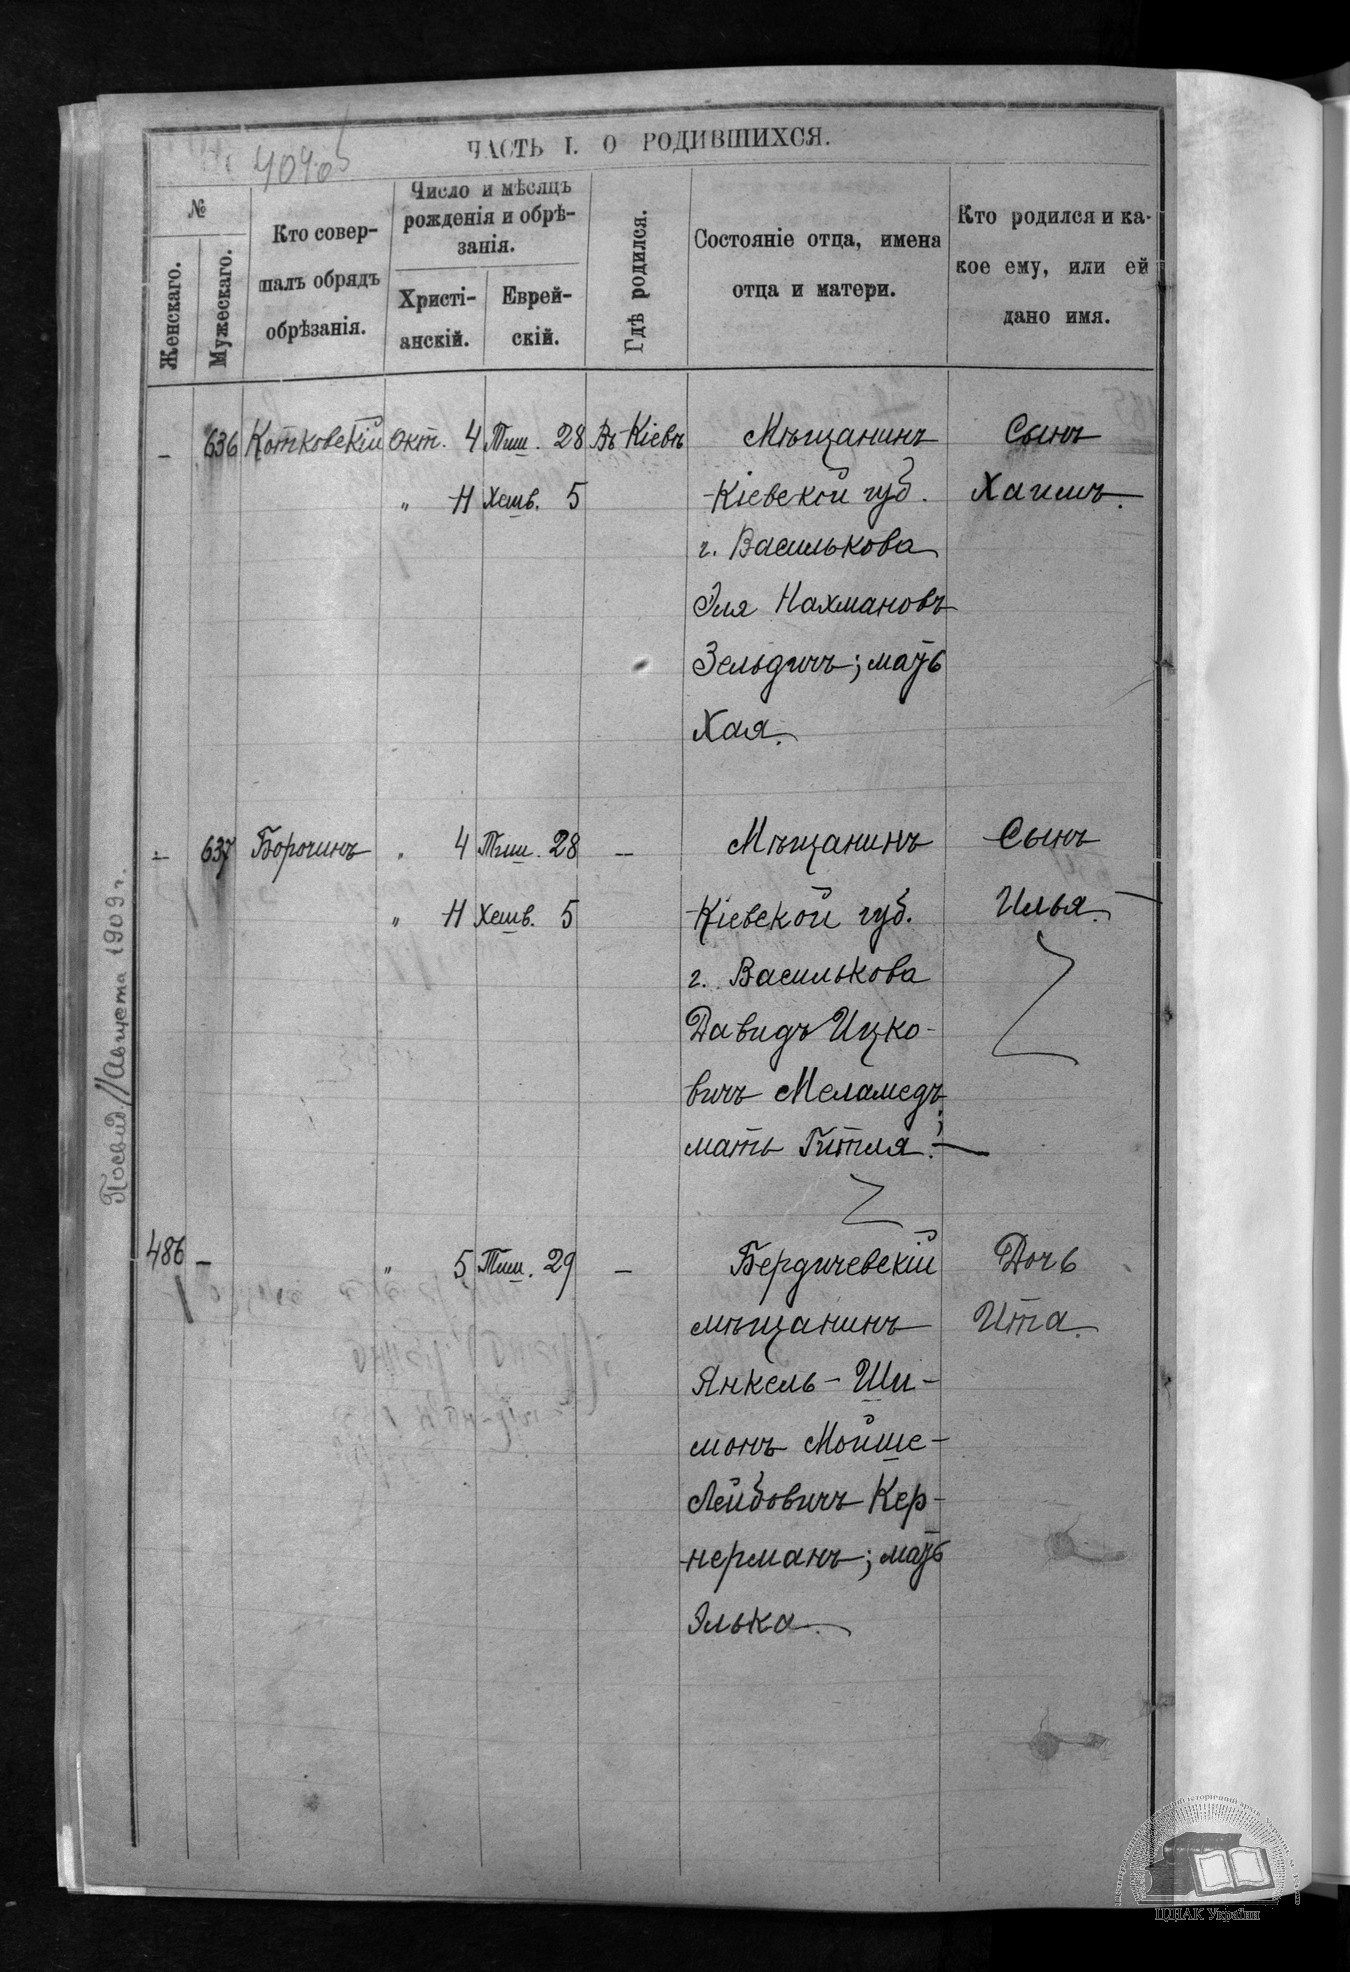 ЧАСТЬ I. О РОДИВШИХСЯ.
№
Женскаго.
Мужескаго.
Кто совер-
шалъ обрядъ
обрѣзанія.
Число и мѣсяцъ
рожденія и обрѣ-
занія.
Христі-
анскій.
Еврей-
скій.
Гдѣ родился.
Состояніе отца, имена
отца и матери.
Кто родился и ка-
кое ему, или ей
дано имя.
– 636 Котковскій Окт. 4 Тиш. 28 Въ Кіевѣ Мѣщанинъ Сынъ
" 11 Хешв. 5 Кіевской губ. Хаимъ.
г. Василькова
Эля Нахмановъ
Зельдичъ; мать
Хая.
– 637 Борочинъ " 4 Тиш. 28 – Мѣщанинъ Сынъ
" 11 Хешв. 5 Кіевской губ. Илья.
г. Василькова
Давидъ Ицко-
вичъ Меламедъ;
мать Гитля.
486 – " 5 Тиш. 29 – Бердичевскій Дочь
мѣщанинъ Ита.
Янкель-Ши-
монъ Мойше-
Лейбовичъ Кер-
нерманъ; мать
Элька.
Августа 1909 г.
ЦДІАК України